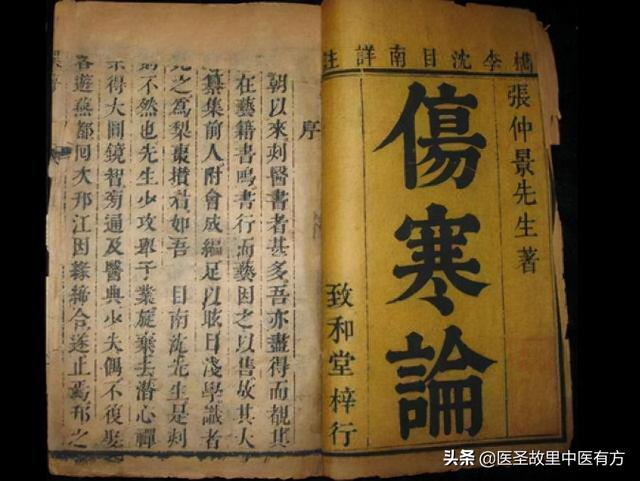 檇李沈目南詳註
張仲景先生著
傷寒論
致和堂梓行
序
朝以來刻醫書者甚多吾亦盡得而觀其
在藝籍書鳴書行而藝因之以售故其大
纂集前人附會成編足以眩目淺學識者
見之為梨棗攢眉如吾 目南沈先生是刻
則不然也先生少攻舉子業旋棄去潛心禪
宗得大圓鏡智旁通及醫典少失偶不復娶
客遊燕都回次邗江因緣締合遂止焉邗之
头条 @医圣故里中医有方